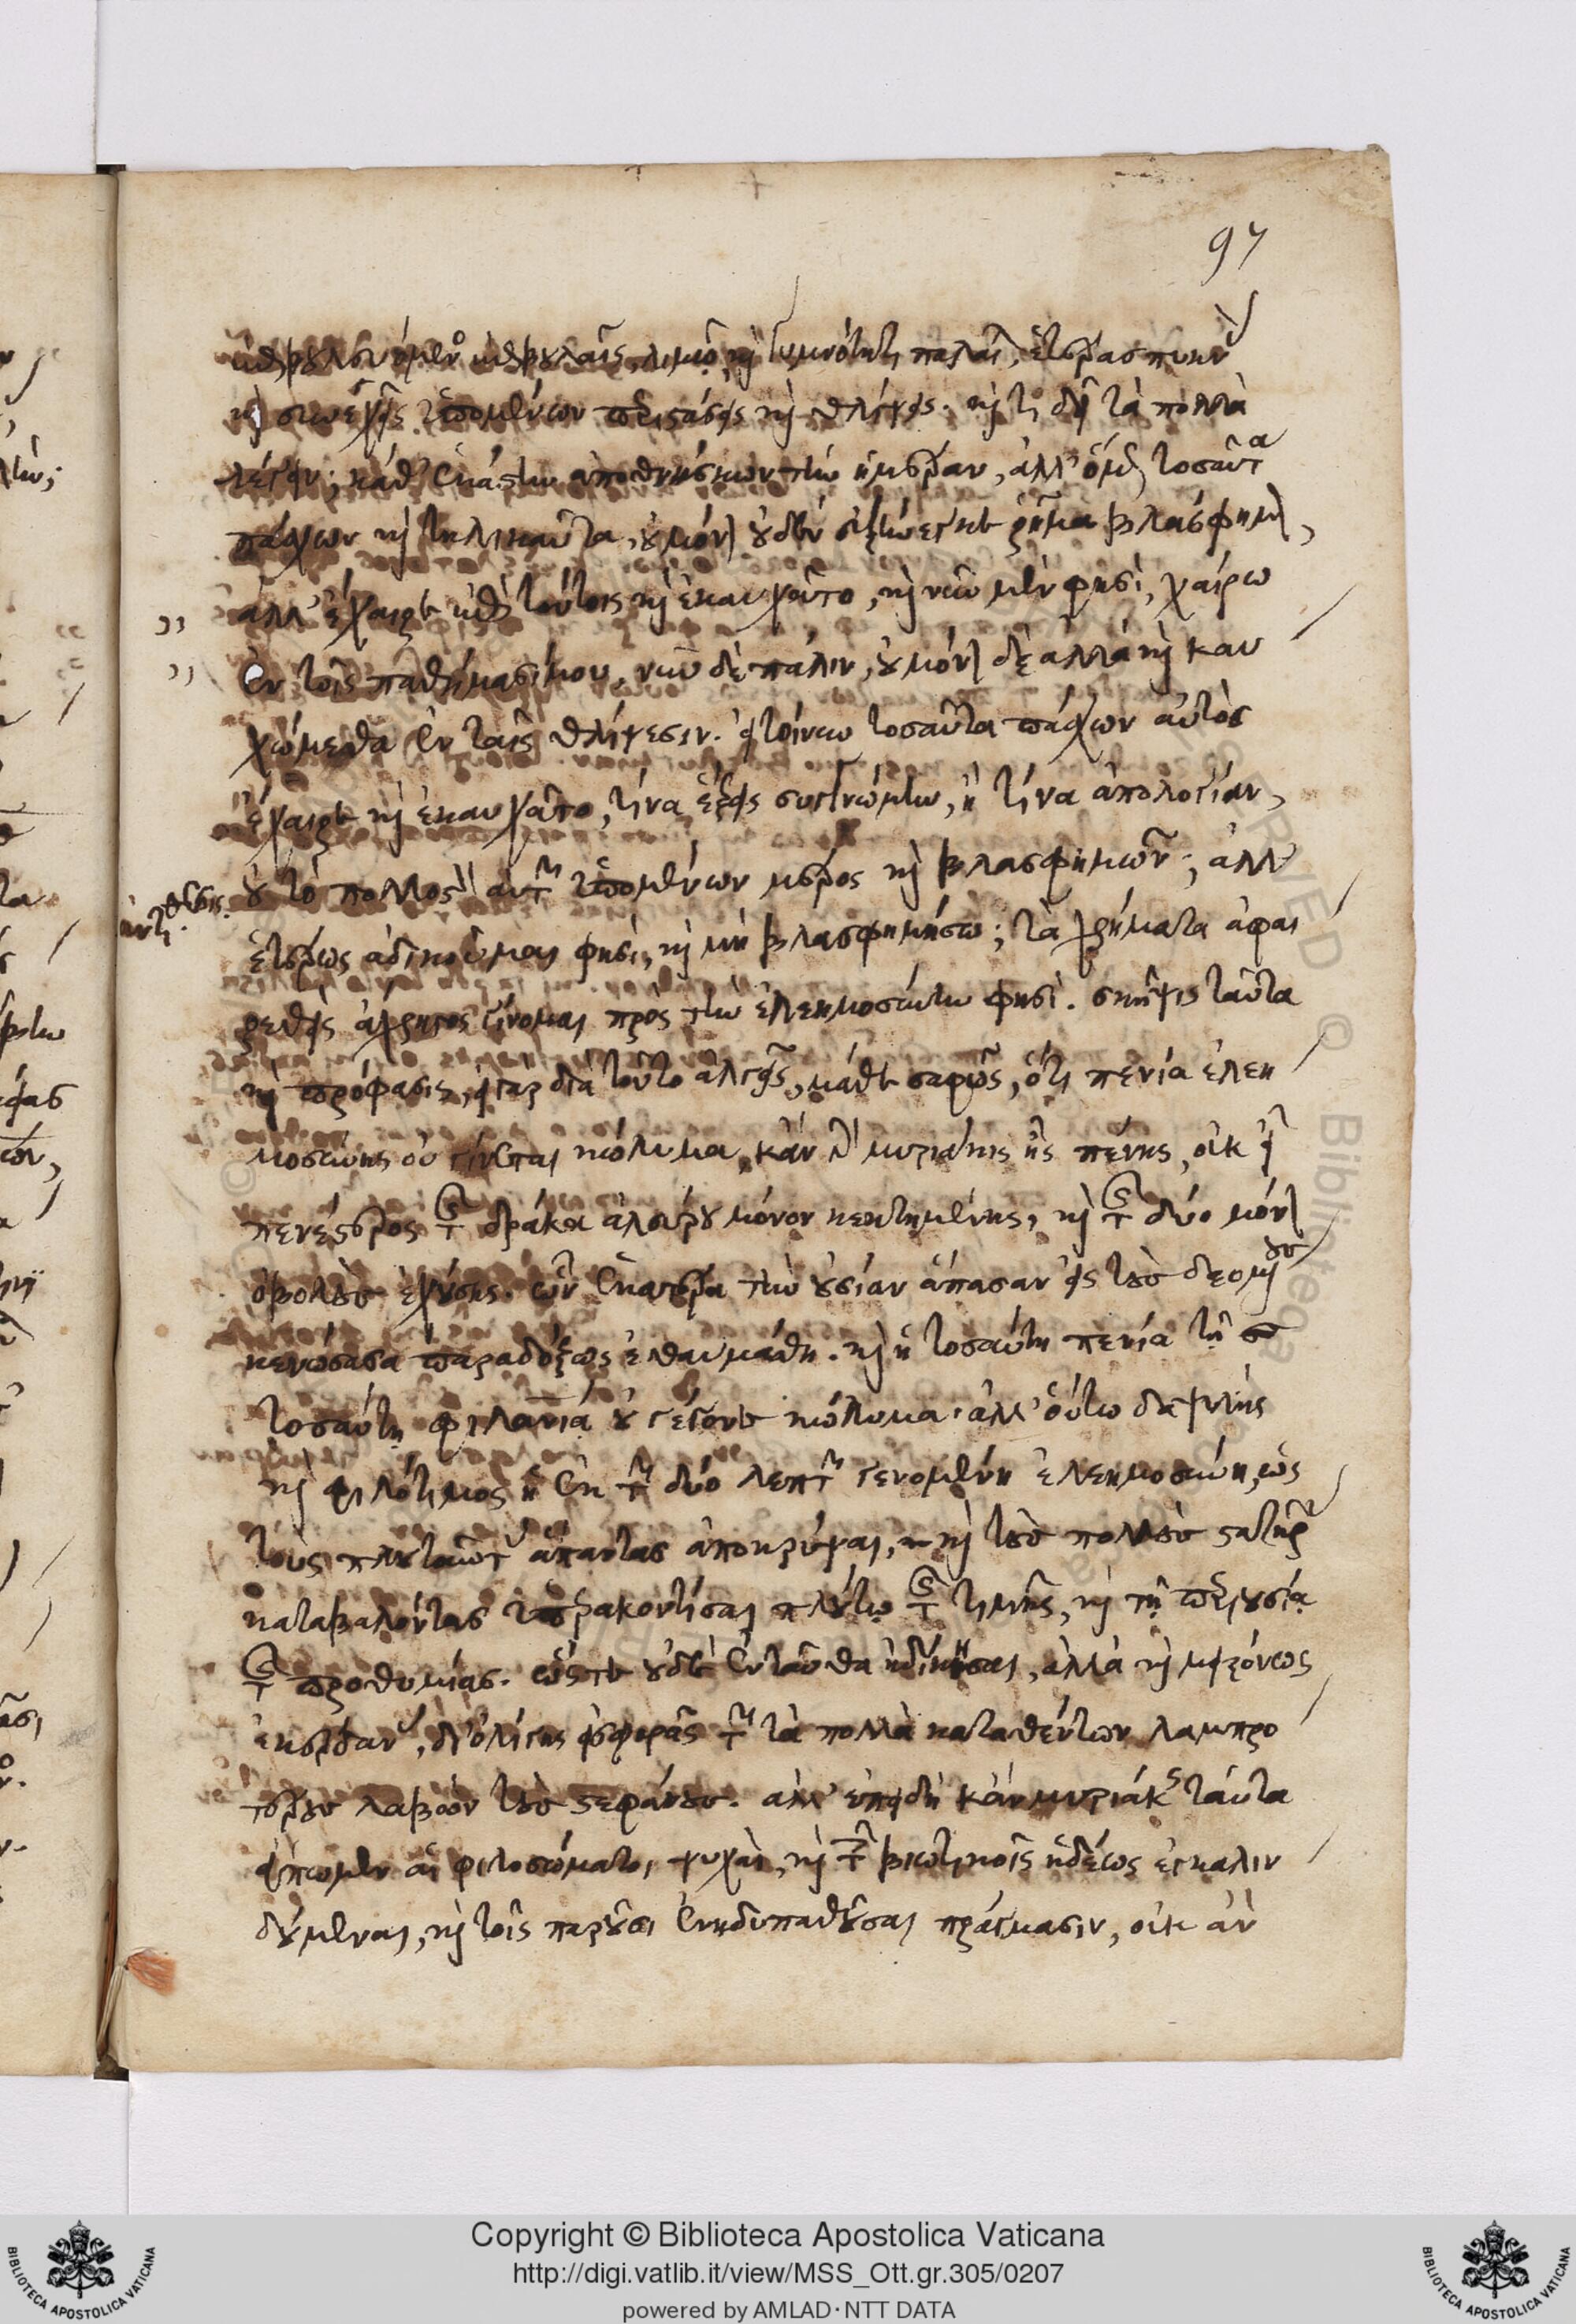 97
ἐπιβουλευόμενος ἐπιβουλαῖς, λιμῷ καὶ γυμνότητι παλαίων, ἑτέρας πυκνὰς
καὶ συνεχεῖς ὑπομένων περιστάσεις καὶ θλίψεις. καὶ τί δεῖ τὰ πολλὰ
λέγειν; καθ' ἑκάστην ἀποθνήσκων τὴν ἡμέραν, ἀλλ' ὅμως τοσαῦτα
πάσχων καὶ τηλικαῦτα, οὐ μόνον οὐδὲν ἐξήνεγκε ῥῆμα βλάσφημον,
ἀλλ' ἔχαιρε ἐπὶ τούτοις καὶ ἐκαυχᾶτο, καὶ νῦν μέν φησι, χαίρω
ἐν τοῖς παθήμασί μου, νῦν δὲ πάλιν, οὐ μόνον δὲ ἀλλὰ καὶ καυ
χώμεθα ἐν ταῖς θλίψεσιν. εἰ τοίνυν τοσαῦτα πάσχων αὐτὸς
ἔχαιρε καὶ ἐκαυχᾶτο, τίνα ἕξεις συγγνώμην, ἢ τίνα ἀπολογίαν,
οὐ τὸ πολλοστὸν αὐτῶν ὑπομένων μέρος καὶ βλασφημῶν; ἀλλ'
ἀντίθεσις.
ἑτέρως ἀδικοῦμαι φησὶ, καὶ μὴ βλασφημήσω; τὰ χρήματα ἀφαι
ρεθεὶς ἄχρηστος γίνομαι πρὸς τὴν ἐλεημοσύνην φησί. σκῆψις ταῦτα
καὶ πρόφασις, εἰ γὰρ διὰ τοῦτο ἀλγεῖς, μάθε σαφῶς, ὅτι πενία ἐλεη
μοσύνης οὐ γίνεται κώλυμα, κἂν γὰρ μυριάκις ᾖς πένης, οὐκ εἶ
πενέστερος τῆς δράκα ἀλεύρου μόνον κεκτημένης, καὶ τῆς δύο μόνον
ὀβολοὺς ἐχούσης. ὧν ἑκατέρα τὴν οὐσίαν ἅπασαν εἰς τοὺς δεομένους
κενώσασα παραδόξως ἐθαυμάσθη. καὶ ἡ τοσαύτη πενία τῇ
τοσαύτῃ φιλανίᾳ οὐ γέγονε κώλυμα. ἀλλ' οὕτω δαψιλὴς
καὶ φιλότιμος ἡ ἐκ τῶν δύο λεπτῶν γενομένη ἐλεημοσύνη, ὡς
τοὺς πλουτοῦντας ἅπαντας ἀποκρύψαι, καὶ τοὺς πολλοὺς στατῆρας
καταβαλόντας ὑπερακοντίσαι πλούτῳ τῆς γνώμης, καὶ τῇ περιουσίᾳ
τῆς προθυμίας. ὥστε οὐδὲ ἐνταῦθα ἠδίκησαι, ἀλλὰ καὶ μειζόνως
ἐκέρδανας, δι' ὀλίγης εἰσφορᾶς τῶν τὰ πολλὰ καταθέντων λαμπρο
τέρους λαβὼν τοὺς στεφάνους. ἀλλ' ἐπειδὴ κἂν μυριάκις ταῦτα
εἴπωμεν αἱ φιλοσώματοι ψυχαὶ, καὶ τοῖς βιωτικοῖς ἡδέως ἐγκαλιν
δούμεναι, καὶ τοῖς παροῦσι ἐνηδυπαθοῦσαι πράγμασιν, οὐκ ἂν
Copyright © Biblioteca Apostolica Vaticana
http://digi.vatlib.it/view/MSS_Ott.gr.305/0207
powered by AMLAD·NTT DATA
BIBLIOTECA APOSTOLICA VATICANA
BIBLIOTECA APOSTOLICA VATICANA